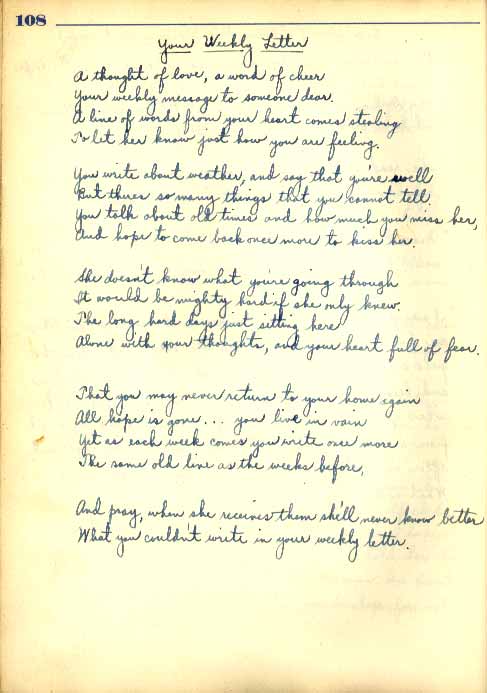 108
Your Weekly Letter
A thought of love, a word of cheer
Your weekly message to someone dear.
A line of words from your heart comes stealing
To let her know just how you are feeling.
You write about weather, and say that you're well
But theres so many things that you cannot tell.
You talk about old times and how much you miss her,
And hope to come back once more to kiss her.
She doesn't know what you're going through
It would be mighty hard if she only knew.
The long hard days just sitting here
Alone with your thoughts, and your heart full of fear.
That you may never return to your home again
All hope is gone... you live in vain
Yet as each week comes you write once more
The same old line as the weeks before,
And pray, when she receives them she'll never know better
What you couldn't write in your weekly letter.